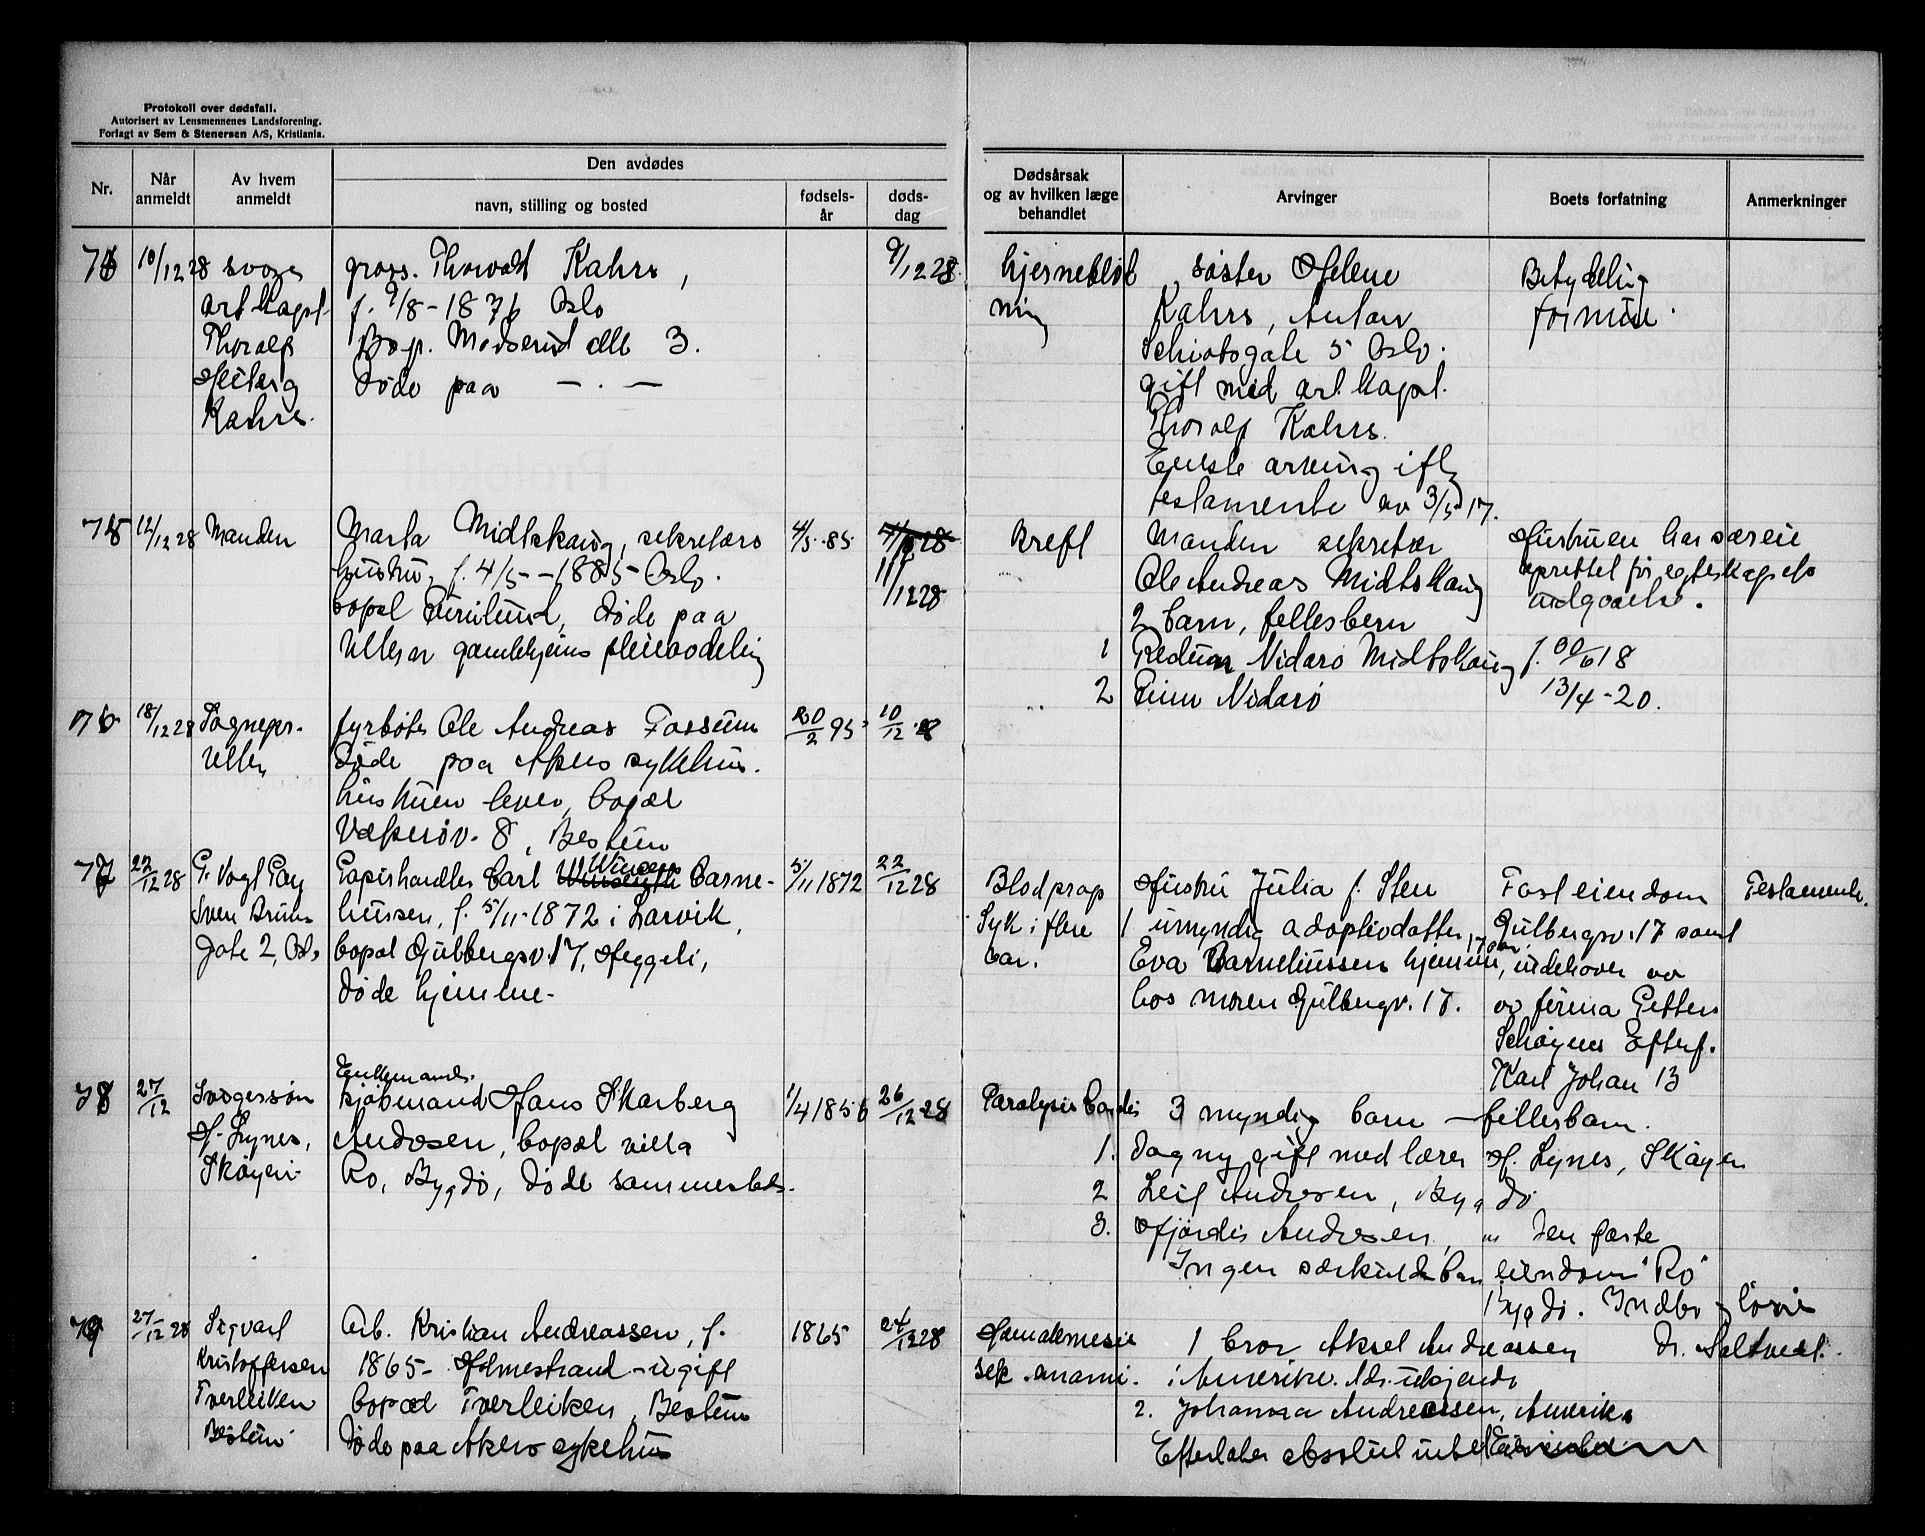 Protokoll over dødsfall.
Autorisert av Lensmennenes Landsforening.
Forlagt av Sem & Stenersen A/S, Kristiania.
Nr.
Når anmeldt
Av hvem anmeldt
Den avdødes
navn, stilling og bosted
fødsels-år
døds-dag
Dødsårsak og av hvilken læge behandlet
Arvinger
Boets forfatning
Anmerkninger
10/12 28
svoger
art. kapt.
Thoralf
Heiberg
Kahrs.
gross. Thorvald Kahrs,
f. 9/8-1876 Oslo
Bop. Madserud allé 3.
Døde paa — . —
9/12 28.
hjerneblød
ning
søster Helene
Kahrs, Anton
Schiøtsgate 5 Oslo.
gift med art. kapt.
Thoralf Kahrs.
Eneste arving ifl.
testamente av 3/5 17.
Betydelig
formue.
75
12/12 28
Manden
Marta Midtskaug, sekretærs
hustru, f. 4/5-1885 Oslo.
bopæl Furulund, døde paa
Ullern gamlehjems pleieavdeling
4/5.85.
11/12 28
Kreft
Manden sekretær
Ole Andreas Midtskaug
2 barn, fellesbarn
1 Reidunn Nidarø Midtskaug f. 30/6 18
2 Finn Nidarø 13/4-20.
Hustruen har særeie
oprettet før egteskapets
indgaaelse.
76
18/12 28
Sogneprs.
Ullern
fyrbøter Ole Andreas Fossum
Døde paa Akers sykehus.
hustruen lever, bopæl
Vækerøv. 8, Bestum
20/2 95
10/12 28
77
22/12 28
G. Vogt Gay
Sven Bruns
gate 2, Oslo
Papirhandler Carl Wincens Corne-
liussen, f. 5/11-1872 i Larvik,
bopæl Gulbergsv. 17, Heggeli,
Døde hjemme.
5/11 1872
22/12 28
Blodprop
Syk i flere
aar.
Hustru Julia f. Sten
1 umyndig adoptivdatter, 17 aar
Eva Corneliussen hjemme,
hos moren Gulbergv. 17.
Fast eiendom
Gulbergsv. 17 samt
indehaver av
av firma Petter
Schøyens Efterf.
Karl Johan 13
Testamente.
78
27/12
Svigersøn
H. Lynes,
Skøyen
Enkemand.
kjøbmand Hans Skarberg
Andresen, bopæl villa
Ro, Bygdø, døde sammesteds.
1/4 1856
26/12 28
Paralysis Cordis
3 myndig barn — fellesbarn.
1. Dagny gift med lærer H. Lynes, Skøyen
2 Leif Andresen, Bygdø
3. Hjørdis Andresen, " Den faste
Ingen særkuldsbarn eiendom "Ro"
Bygdø. Indbo og løsøre
79
27/12 28
Sigvart
Kristoffersen
Tverleiken
Bestum
Arb. Kristian Andreassen, f.
1865 - Holmestrand - ugift
bopæl Tverleiken, Bestum
Døde paa Akers sykehus
1865
24/12 28
Hæmatemesie
sek. anæmi.
1 bror Aksel Andreassen
i Amerika. Adr. ukjendt
2. Johanna Andreassen, Amerika
Efterlater absolut intet